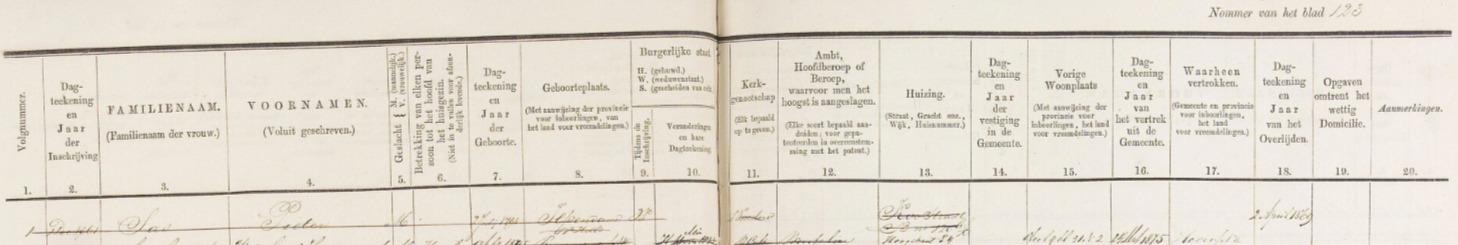 Nommer van het blad 123
Volgnummer.
Dag-
teekening
en
Jaar
der
Inschrijving
FAMILIENAAM.
(Familienaam der vrouw.)
VOORNAMEN.
(Voluit geschreven.)
Geslacht { M. (mannelijk.) V. (vrouwelijk.)
Betrekking van elken per-
soon tot het hoofd van
het huisgezin.
(Niet in te vullen voor afzon-
derlijk levende.)
Dag-
teekening
en
Jaar
der
Geboorte.
Geboorteplaats.
(Met aanwijzing der provincie
voor inboorlingen, van
het land voor vreemdelingen.)
Burgerlijke staat.
H. (gehuwd.)
W. (weduwenstaat.)
S. (gescheiden van echt.
Tijdens de
Inschrijving.
Veranderingen
en hare
Dagteekening.
Kerk-
genootschap
(Elk bepaald
op te geven.)
Ambt,
Hoofdberoep of
Beroep,
waarvoor men het
hoogst is aangeslagen.
(Elke soort bepaald aan-
duiden; voor gepa-
tenteerden in overeenstem-
ming met het patent.)
Huizing.
(Straat, Gracht enz.,
Wijk, Huisnummer.)
Dag-
teekening
en
Jaar
der
vestiging
in de
Gemeente.
Vorige
Woonplaats
(Met aanwijzing der
provincie voor
inboorlingen, het land
voor vreemdelingen.)
Dag-
teekening
en
Jaar
van
het vertrek
uit de
Gemeente.
Waarheen
vertrokken.
(Gemeente en provincie
voor inboorlingen,
het land
voor vreemdelingen.)
Dag-
teekening
en
Jaar
van het
Overlijden.
Opgaven
omtrent het
wettig
Domicilie.
Aanmerkingen.
1. 2. 3. 4. 5. 6. 7. 8. 9. 10. 11. 12. 13. 14. 15. 16. 17. 18. 19. 20.
1 Pieter M. 2 April 1869
1875